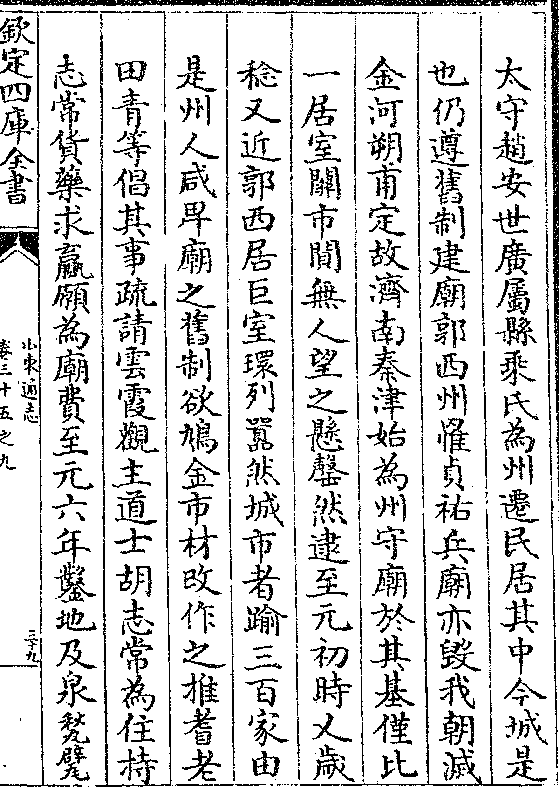 太守趙安世廣屬縣乘氏為州遷民居其中今城是
也仍遵舊制建廟郭西州惟貞祐兵廟亦毀我朝滅
金河朔甫定故濟南秦津始為州守廟於其基僅比
一居室闤市闃無人望之懸罄然逮至元初時乂歲
稔又近郭西居巨室環列嚣然城市者踰三百家由
是州人咸卑廟之舊制欲鳩金市材改作之推耆老
田青等倡其事疏請雲霞觀主道士胡志常為住持
志常貨藥求贏願為廟費至元六年鑿地及泉甃甓
欽定四庫全書
山東通志
卷三十五之九
三十九